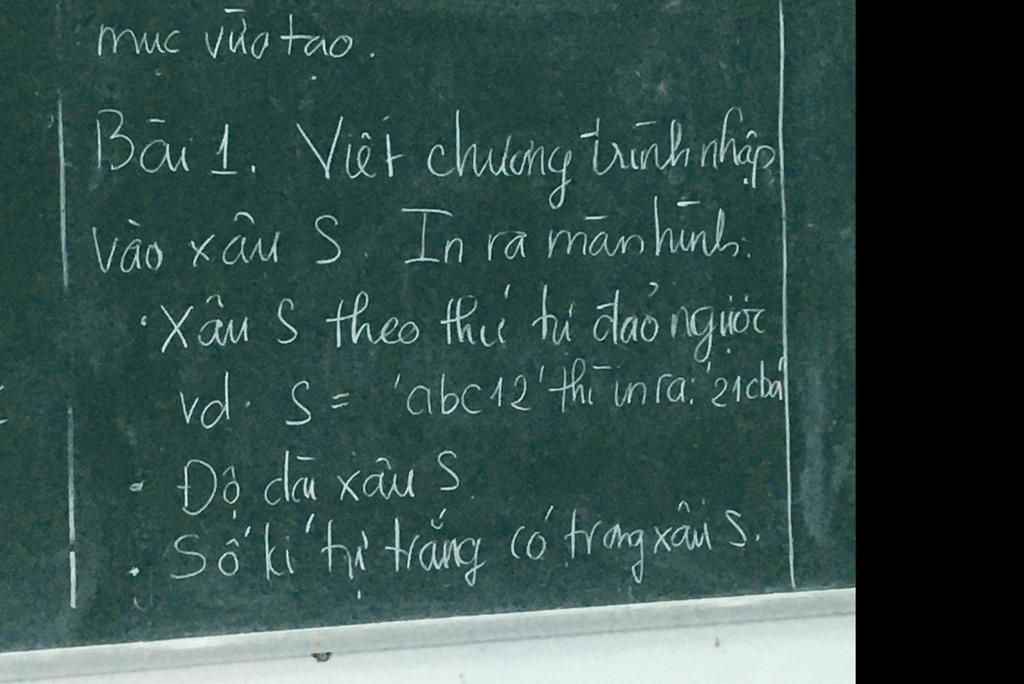 mục vừa tạo.
Bài 1. Viết chương trình nhập
vào xâu S. In ra màn hình:
• Xâu S theo thứ tự đảo ngược
vd. S = 'abc12' thì in ra: '21cba'
• Độ dài xâu S.
• Số kí tự trắng có trong xâu S.